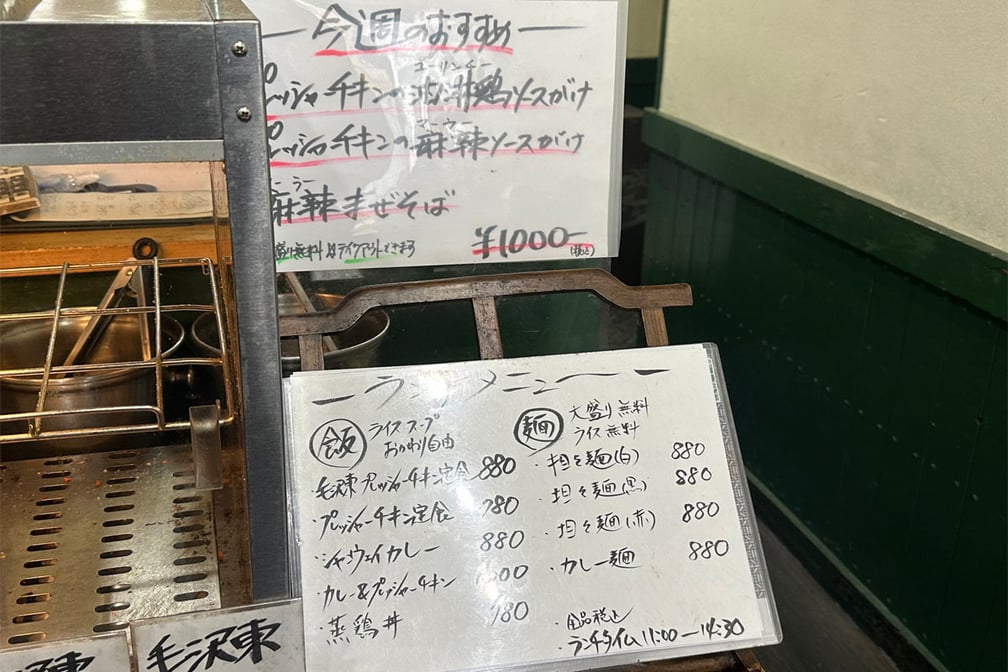 今週のおすすめ
ユーリンチー
プレッシャーチキンの油淋鶏ソースがけ
マーラー
プレッシャーチキンの麻辣ソースがけ
ーラー
麻辣まぜそば
盛り無料 テイクアウトできます
¥1000-
(税込)
ランチメニュー
飯 ライス スープ
おかわり自由
毛沢東プレッシャーチキン定食 880
・プレッシャーチキン定食 780
・シャンウェイカレー 880
・カレー&プレッシャーチキン 00
・蒸鶏丼 780
麺 大盛り無料
ライス無料
・担々麺(白) 880
・担々麺(黒) 880
・担々麺(赤) 880
・カレー麺 880
・全品税込
ランチタイム 11:00ー14:30
沢東
毛沢東